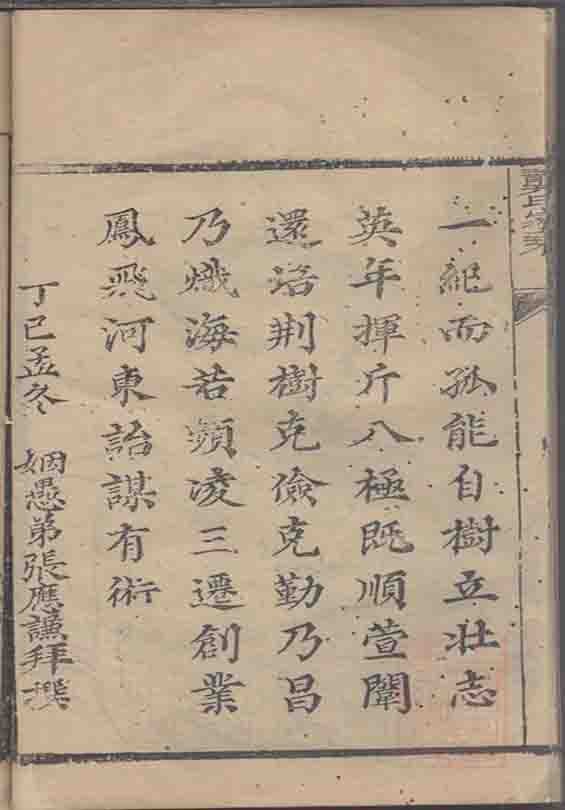 氏宗
一紀而孤能自樹立壯志
英年揮斤八極既順萱闈
還洽荆樹克儉克勤乃昌
乃熾海若頻凌三遷創業
鳳飛河東詒謀有術
丁巳孟冬 姻愚弟張應謙拜撰